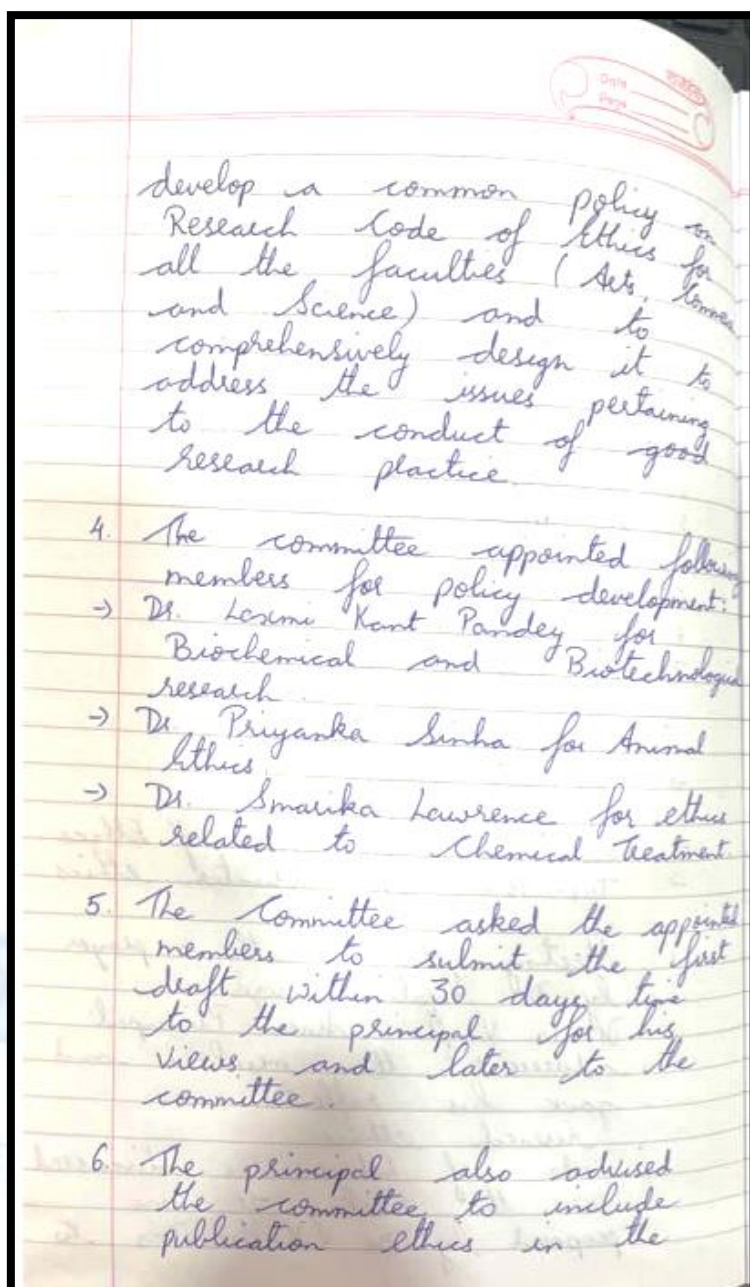 Date
Page
develop a common policy on
Research Code of Ethics for
all the faculties (Arts,
and Science) and to
comprehensively design it to
address the issues pertaining
to the conduct of good
research practice
4. The committee appointed following
members for policy development:
→ Dr. Laxmi Kant Pandey for
Biochemical and
research.
→ Dr. Priyanka Sinha for Animal
Ethics.
→ Dr. Smarika Lawrence for ethics
related to Chemical Treatment.
5. The Committee asked the appointed
members to submit the first
draft within 30 days time
to the principal for his
views and later to the
committee.
6. The principal also advised
the committee to include
publication ethics in the